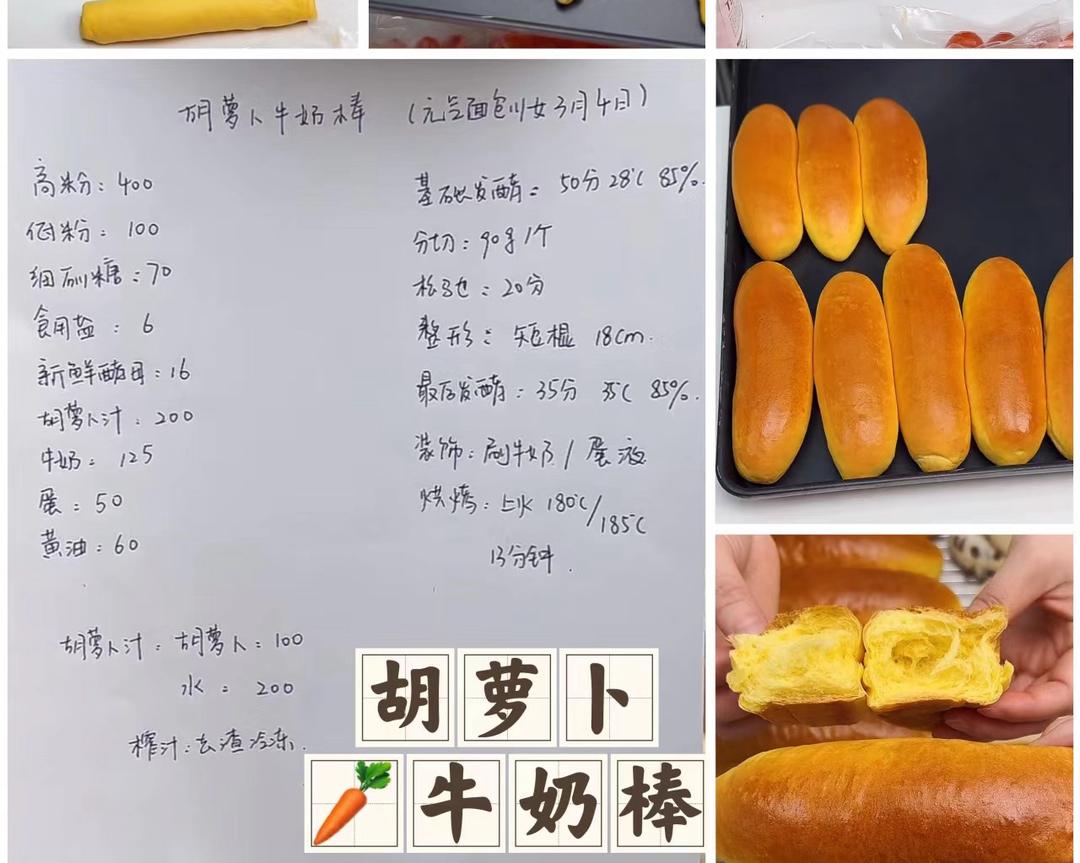 胡萝卜牛奶棒 (元气面包少女3月4日)
高粉:400
低粉:100
细砂糖:70
食用盐:6
新鲜酵母:16
胡萝卜汁:200
牛奶:125
蛋:50
黄油:60
基础发酵:50分 28℃ 85%.
分切:90g/个
松弛:20分
整形:短棍 18cm.
最后发酵:35分 35℃ 85%.
装饰:刷牛奶/蛋液
烘烤:上火 180℃/185℃
13分钟.
胡萝卜汁:胡萝卜:100
水:200
榨汁:去渣冷冻.
胡萝卜
牛奶棒